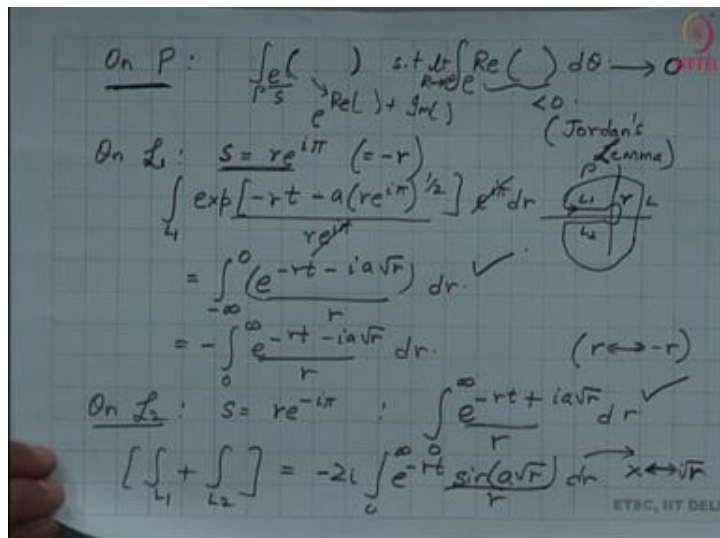 On Γ: ∫_Γ e^( ) / s s.t lt_{R→∞} ∫ e^{Re( )} dθ → 0
e^{Re( ) + Im( )} < 0
(Jordan's Lemma)
On L₁: s = re^{iπ} (= -r)
∫_{L₁} exp[-rt - a(re^{iπ})^{1/2}] / re^{iπ} e^{iπ} dr
Γ L₁ r L
L₂
= ∫_{-∞}^{0} (e^{-rt - ia√r}) / r dr. ✓
= - ∫_0^∞ e^{-rt - ia√r} / r dr. (r ↔ -r)
On L₂: s = re^{-iπ} : ∫_0^∞ e^{-rt + ia√r} / r dr ✓
[∫_{L₁} + ∫_{L₂}] = -2i ∫_0^∞ e^{-rt} sin(a√r) / r dr → x ↔ √r
ETSC, IIT DEL